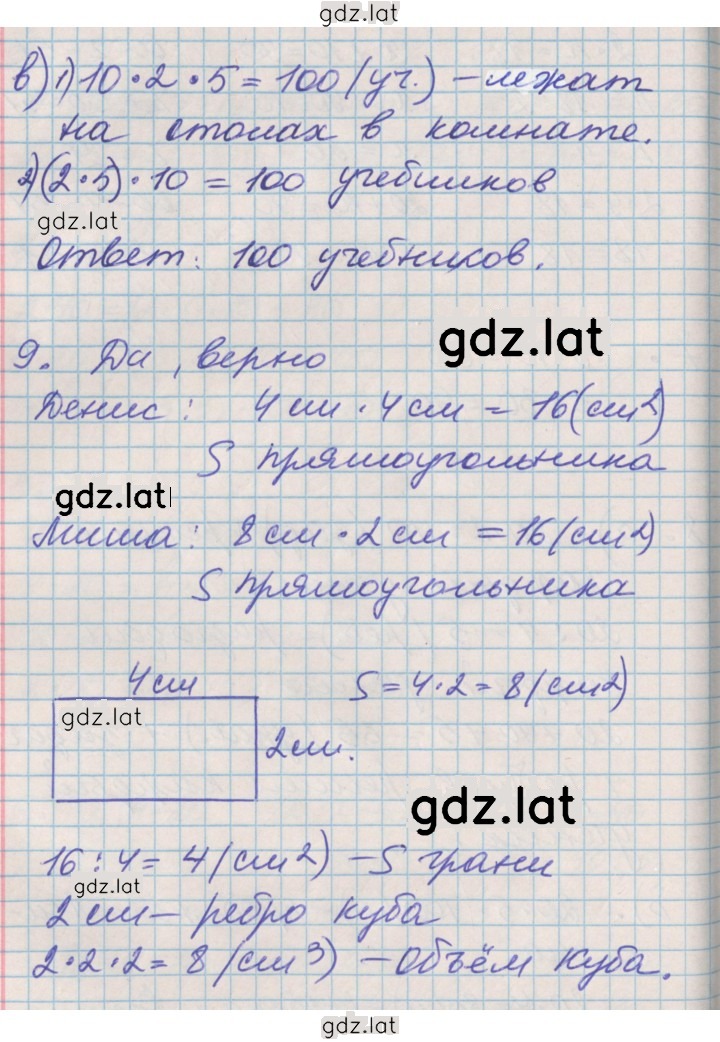 gdz.lat
в) 1) 10 • 2 • 5 = 100 (уч.) – лежат
на столах в комнате.
2) (2 • 5) • 10 = 100 учебников
gdz.lat
Ответ: 100 учебников.
gdz.lat
9. Да, верно
Денис: 4 см • 4 см = 16 (см2)
S прямоугольника
gdz.lat
Миша: 8 см • 2 см = 16 (см2)
S прямоугольника
4 см
S = 4 • 2 = 8 (см2)
gdz.lat
2 см.
gdz.lat
16 : 4 = 4 (см2) – S грани
gdz.lat
2 см – ребро куба
2 • 2 • 2 = 8 (см3) – Объём куба.
gdz.lat